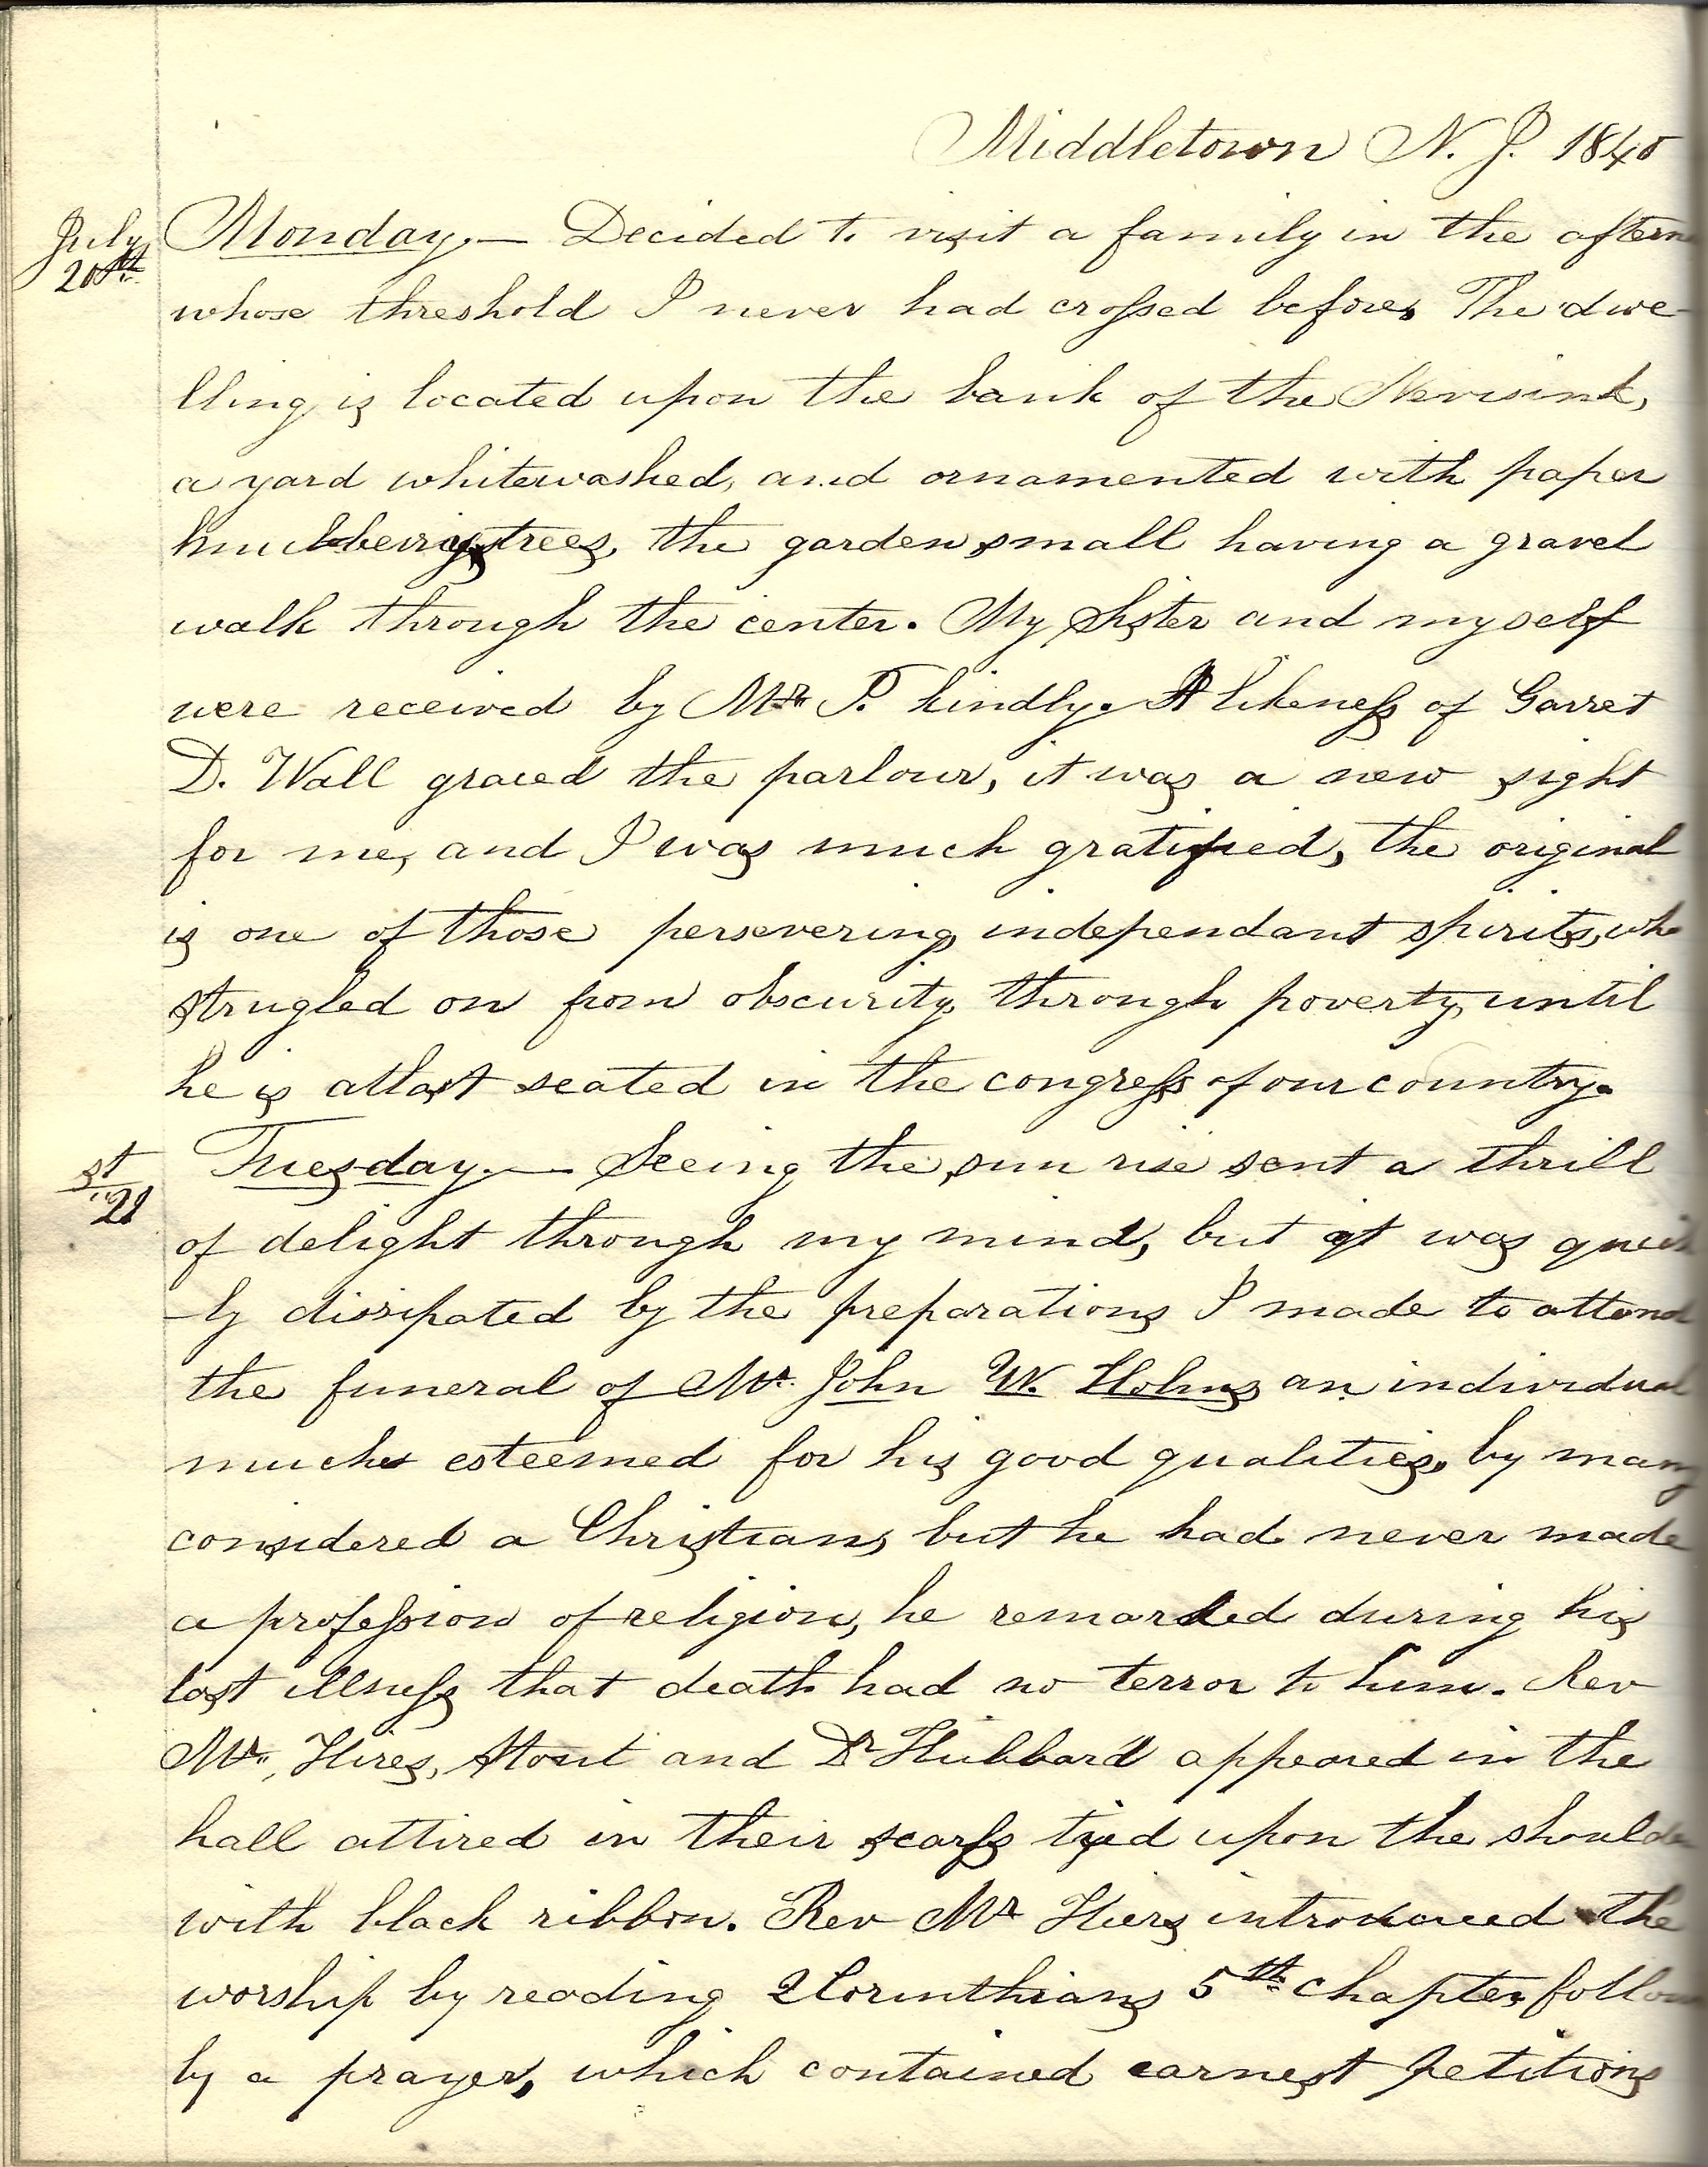 Middletown N. J. 1840
July 20th Monday.— Decided to visit a family in the aftern
whose threshold I never had crossed before, The dwe-
lling is located upon the bank of the Nevisink,
a yard whitewashed, and ornamented with paper
huckberrys trees, the garden small having a gravel
walk through the center. My Sister and myself
were received by Mrs P. kindly. A likeness of Garret
D. Wall graced the parlour, it was a new sight
for me, and I was much gratified, the original
is one of those persevering independant spirits, who
strugled on from obscurity, through poverty, until
he is atlast seated in the congress of our country.
21st Tuesday.— Seeing the sun rise sent a thrill
of delight through my mind, but it was quick
-ly dissipated by the preparations I made to attend
the funeral of Mr. John W. Holms an individual
much esteemed for his good qualities, by many
considered a Christian, but he had never made
a profession of religion, he remarked during his
last illness that death had no terror to him. Rev
Mr, Hires, Stout and Dr Hubbard appeared in the
hall attired in their scarfs tied upon the shoulde
with black ribbon. Rev Mr Hiers introduced the
worship by reading 2 Corinthians 5th chapter, follow
by a prayer, which contained earnest petitions